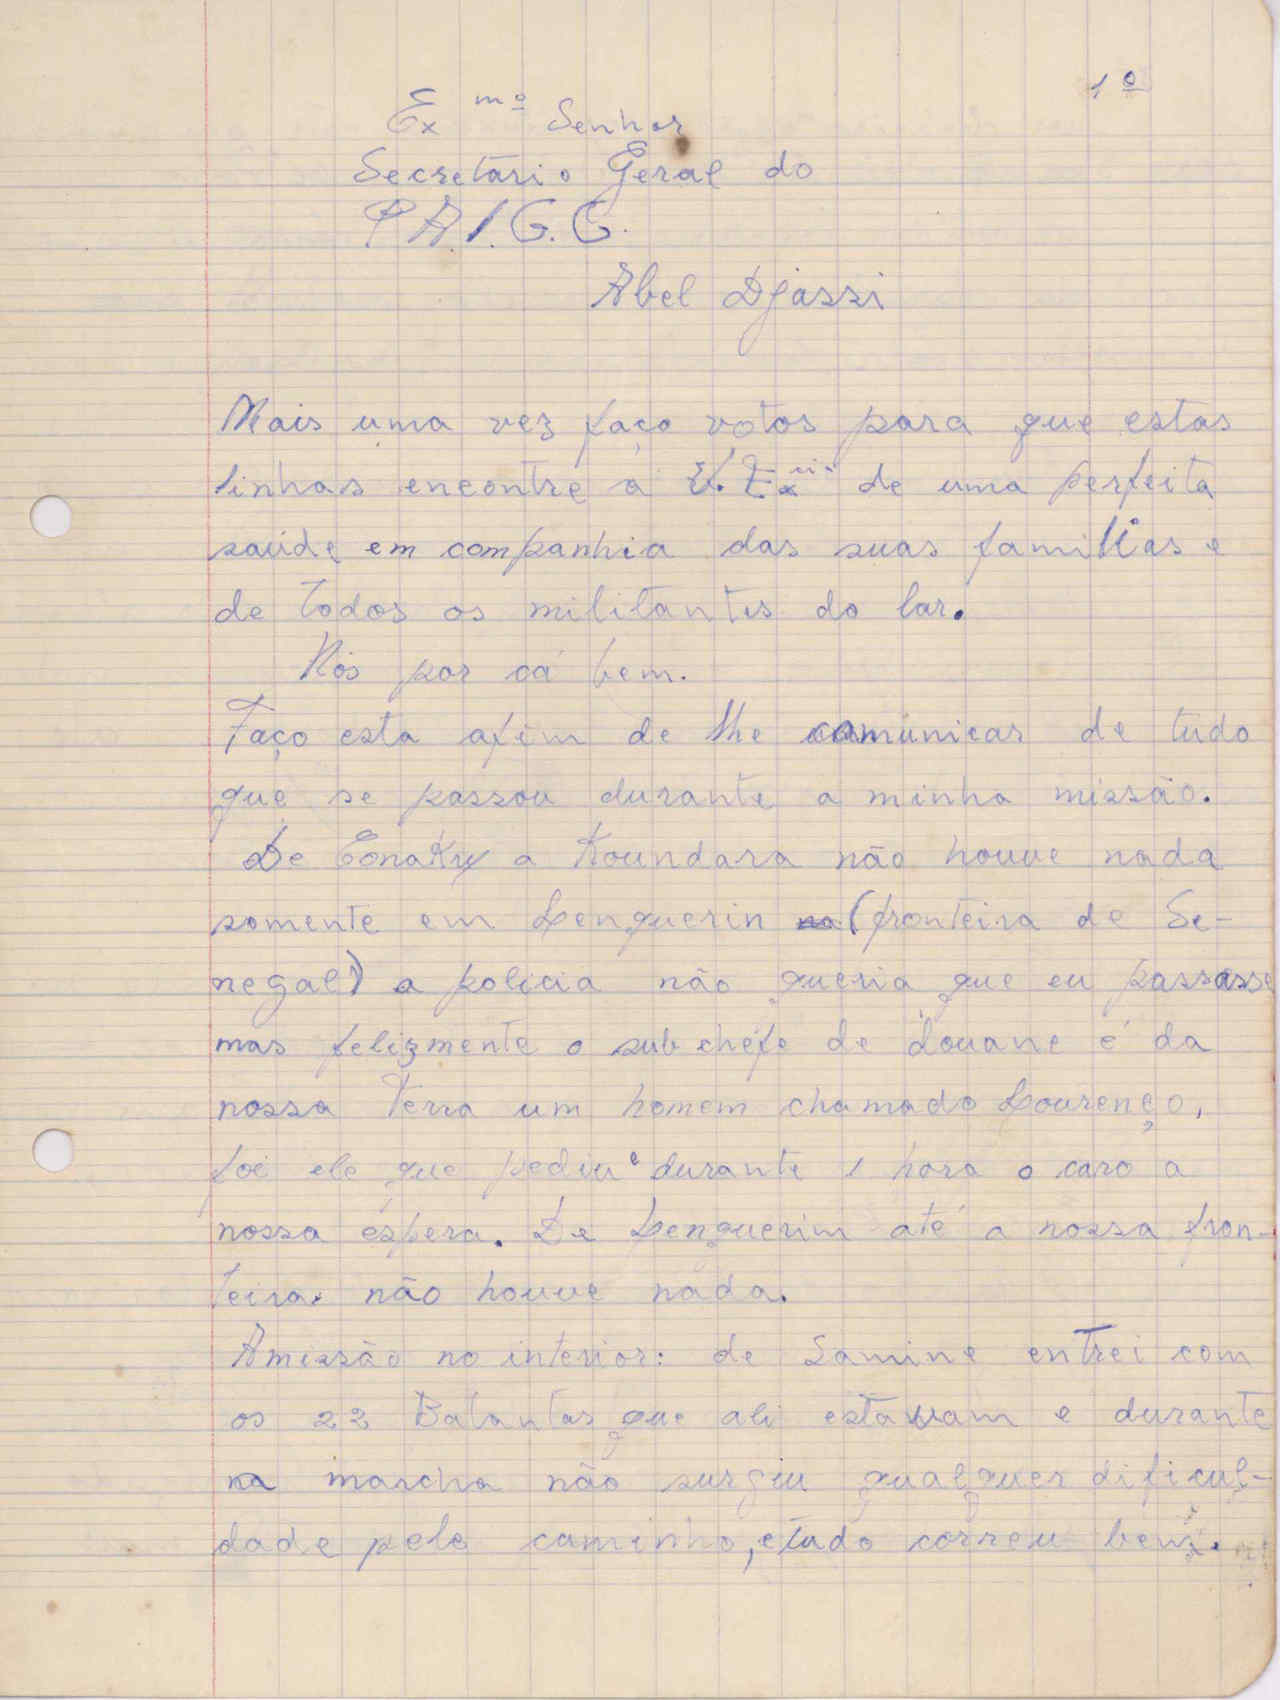 1º
Exmº Senhor
Secretário Geral do
P.A.I.G.C.
Abel Djassi
Mais uma vez faço votos para que estas
linhas encontre a V. Exciª de uma perfeita
saúde em companhia das suas familias e
de todos os militantes do lar.
Nós por cá bem.
Faço esta afim de lhe comunicar de tudo
que se passou durante a minha missão.
De Conakry a Koundara não houve nada
somente em Lenguerin na (fronteira de Se-
negal) a policia não queria que eu passasse
mas felizmente o sub chefe de douane é da
nossa terra um homem chamado Lourenço,
foi ele que pediu e durante 1 hora o caro a
nossa espera. De Lenguerim até a nossa fron-
teira não houve nada.
Amissão no interior: de Samine entrei com
os 22 Balantas que ali estavam e durante
na marcha não surgiu qualquer dificul-
dade pelo caminho, e tudo correu bem.